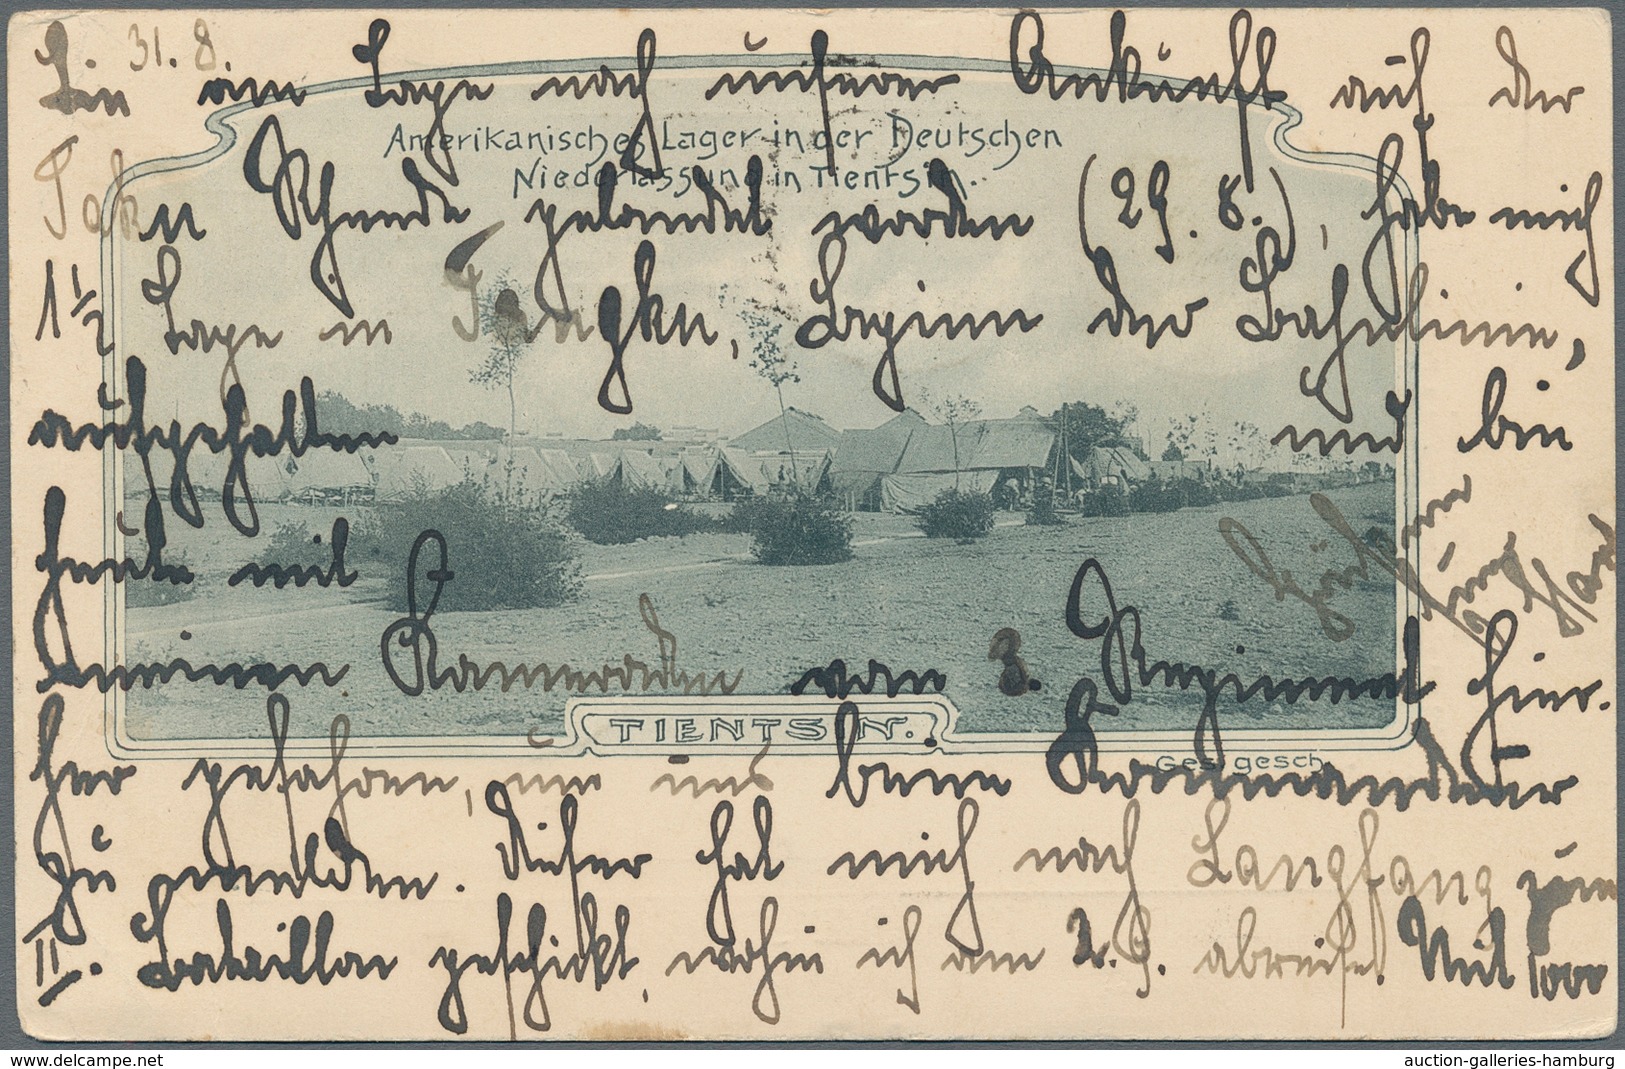 31. 8.
Bin am Tage nach unserer Ankunft auf der
Taku Rheede gelandet worden (29. 8.), habe mich
1½ Tage in Tangku, Beginn der Bahnlinie,
aufgehalten und bin
heute mit
meinen Kameraden vom 3. Regiment hier-
her gefahren, um uns beim Kommandeur
zu melden. Dieser hat mich nach Langfang zum
II. Bataillon geschickt, wohin ich am 2. 9. abreise. Mit 1000
Amerikanisches Lager in der Deutschen
Niederlassung in Tientsin.
TIENTSIN.
Ges. gesch.
www.delcampe.net
auction-galleries-hamburg